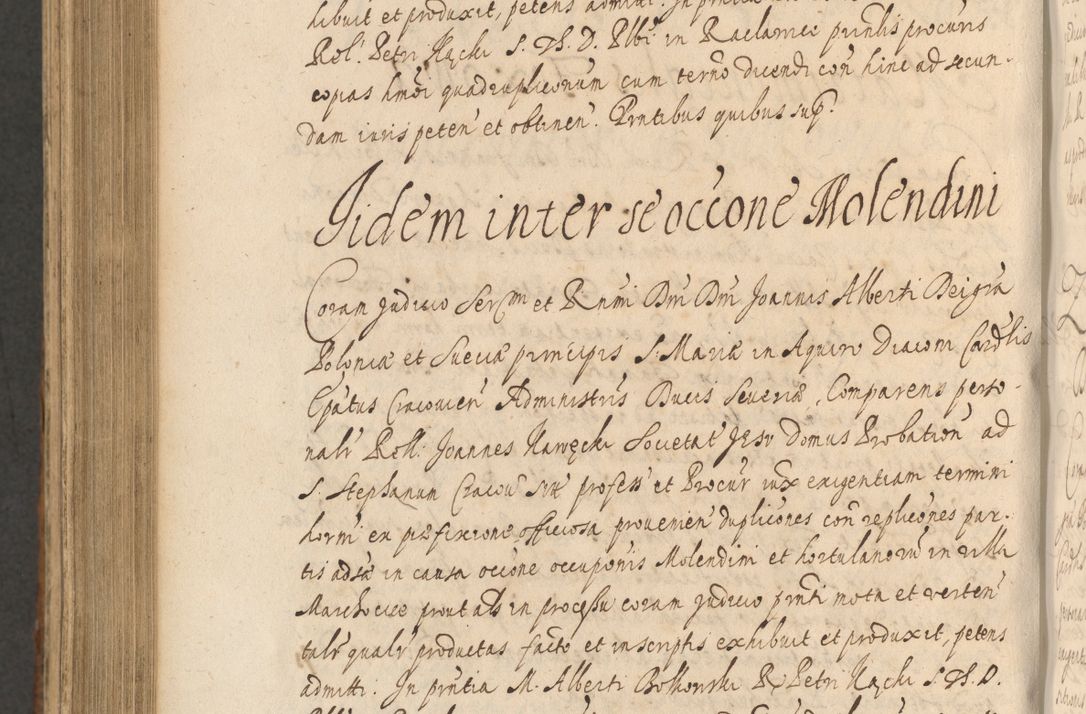 hibuit et produxit, petens admitti. In prntia
Rol. Petri Kącki S. Th. D. Plbi in Raclawice prnlis procuris
copias hmoi quadruplicorum cum terno dicendi con hinc ad secun-
dam iuris peten et obtinen. Prntibus quibus sup.
Iidem inter se occone Molendini
Coram Judicio Sermi et Rnmi Dni Dni Joannis Alberti Dei gra
Poloniæ et Sueciæ principis S. Mariæ in Aquiro Diaconi Cardlis
Epatus Cracovien Administris Ducis Severiæ, Comparens perso-
nalr Roll. Joannes Kawęcki Societat Jesv Domus Probation ad
S. Stephanum Cracov sitæ profess et Procur iux exigentiam termini
horni ex præfixione officiosa provenien duplicones con replicones par-
tis adsæ in causa occone occuponis Molendini et hortulanorum in villa
Marchocice prout als in processu coram Judicio prnti mota et verten
talr qualr productas facto et in scriptis exhibuit et produxit, petens
admitti. In prntia M. Alberti Bolkonski R. Petri Kącki S. Th. D.